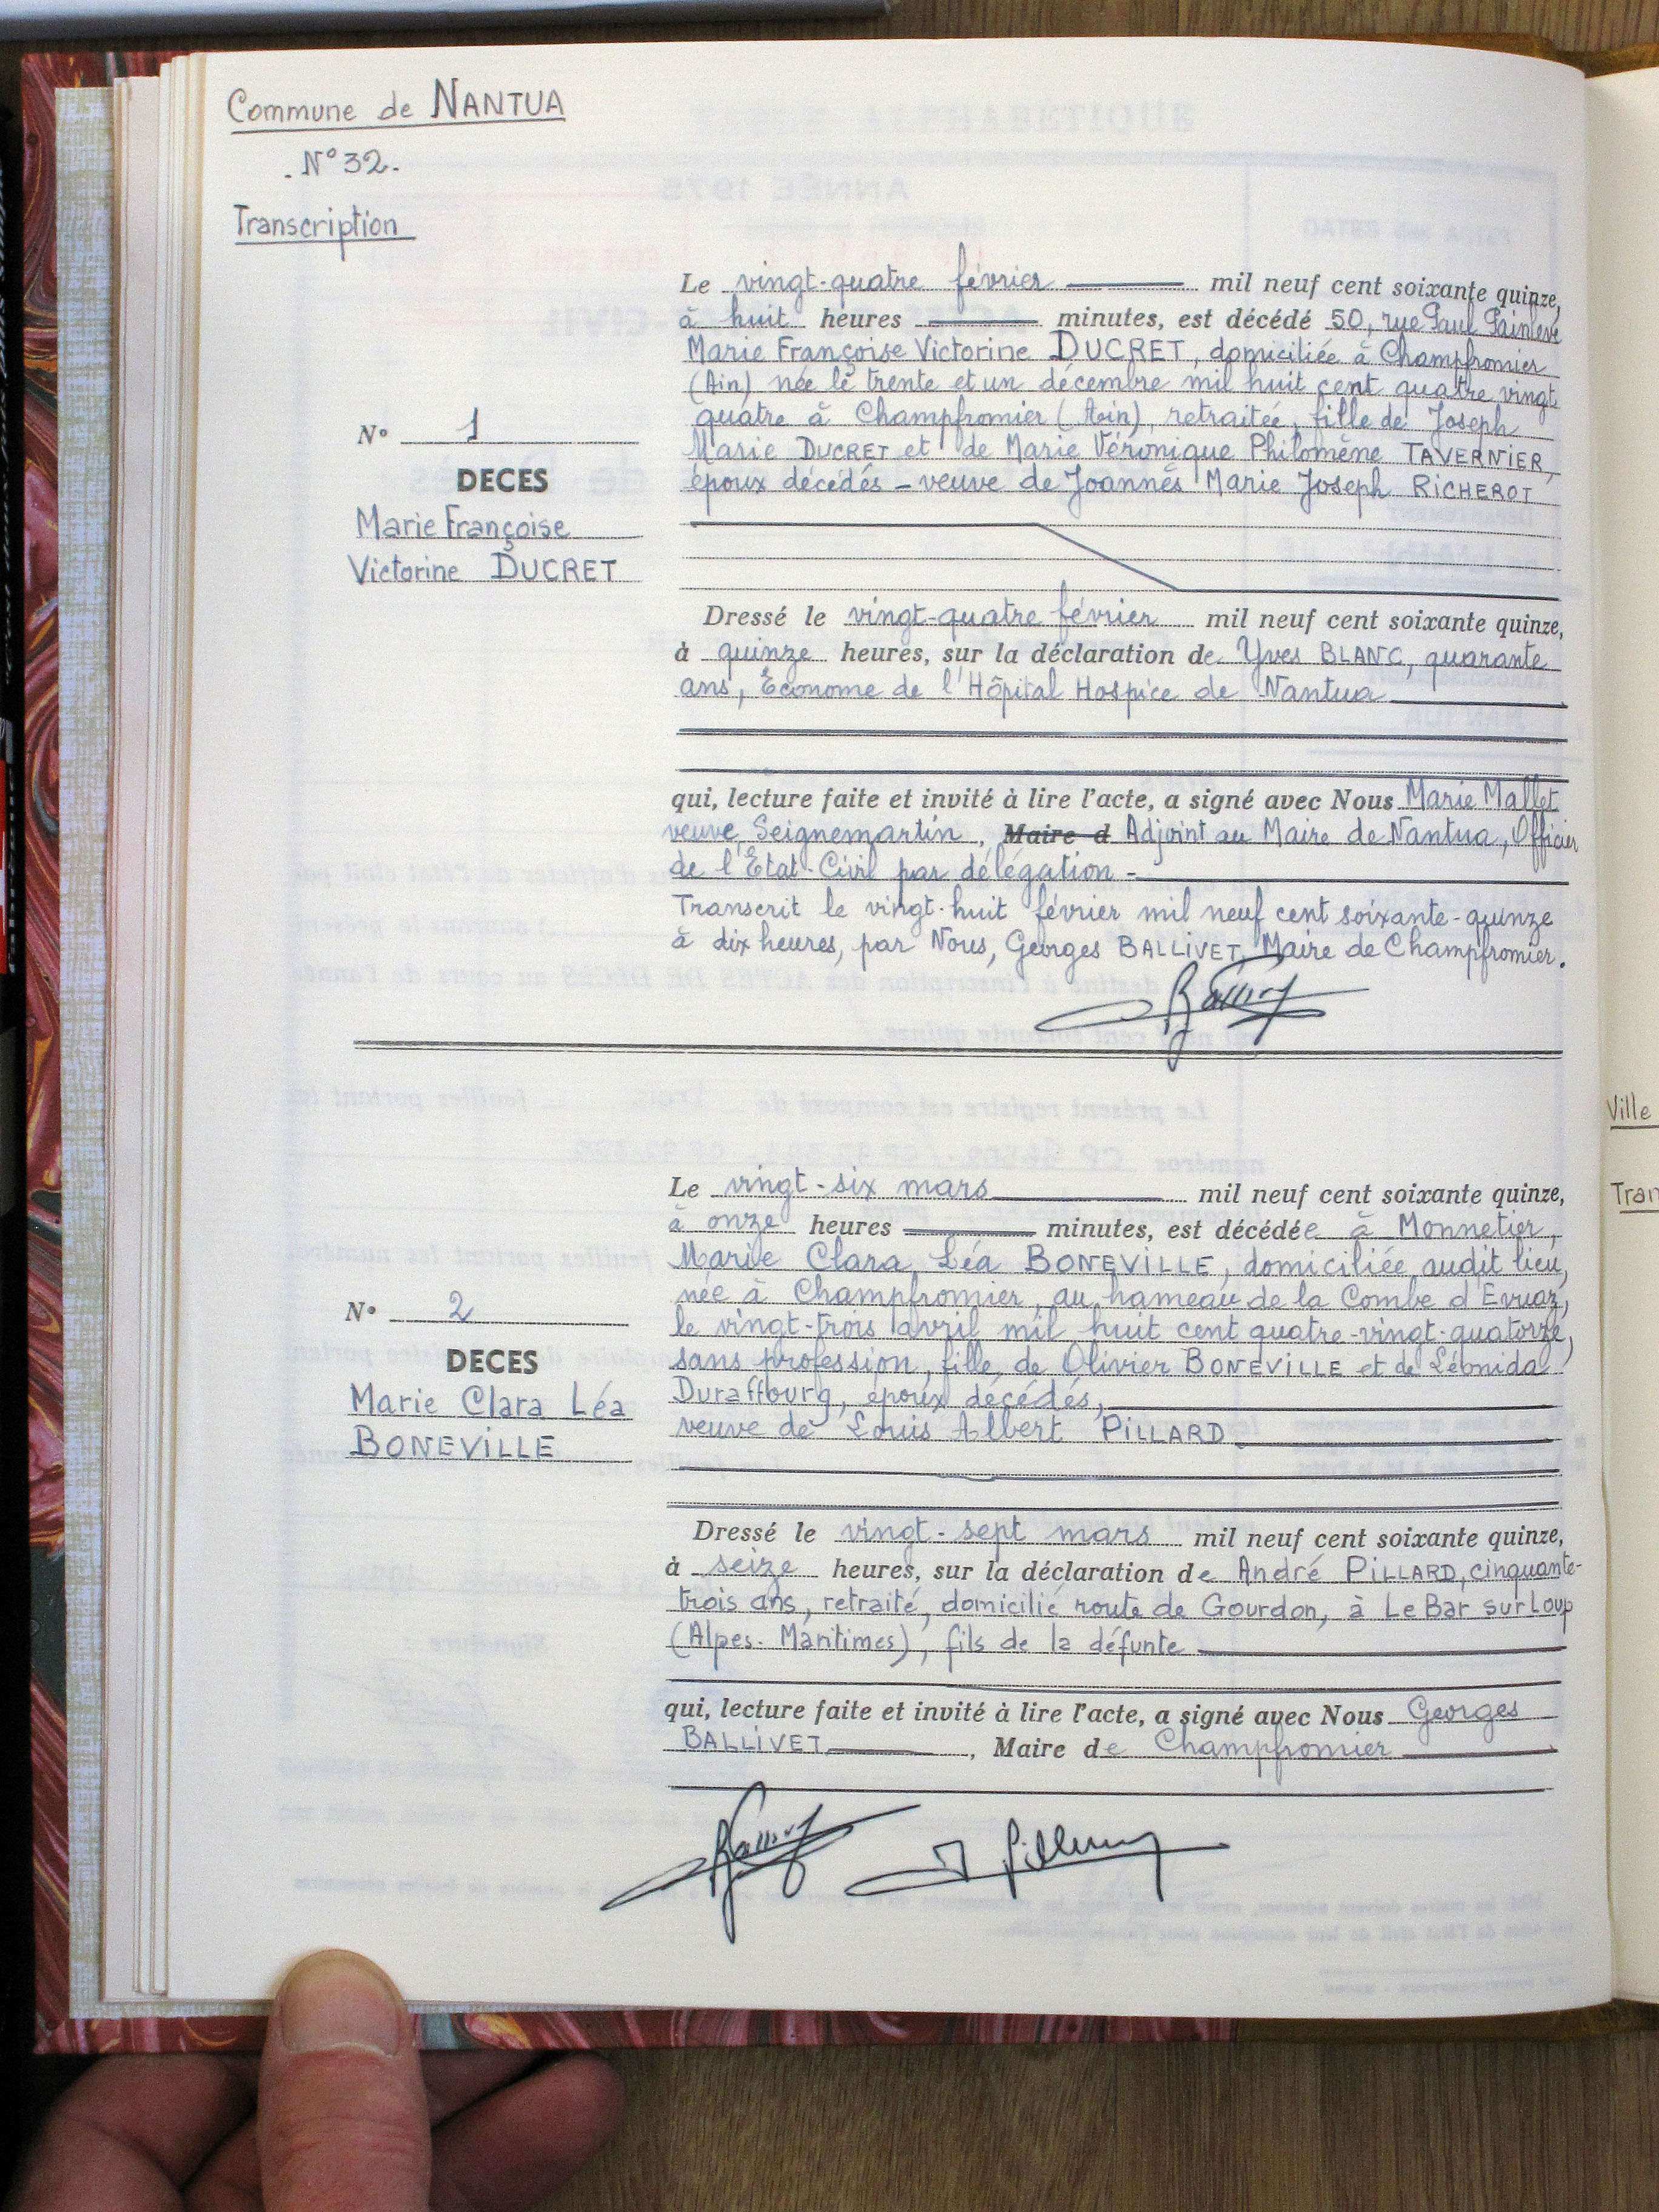 Commune de NANTUA
N° 32.
Transcription
Le vingt-quatre février mil neuf cent soixante quinze,
à huit heures minutes, est décédé 50, rue Paul Painlevé
Marie Françoise Victorine DUCRET, domiciliée à Champfromier
(Ain) née le trente et un décembre mil huit cent quatre vingt
quatre à Champfromier (Ain), retraitée, fille de Joseph
Marie DUCRET et de Marie Véronique Philomène TAVERNIER,
époux décédés - veuve de Joannès Marie Joseph RICHEROT
N° 1
DECES
Marie Françoise
Victorine DUCRET
Dressé le vingt-quatre février mil neuf cent soixante quinze,
à quinze heures, sur la déclaration de Yves BLANC, quarante
ans, Econome de l'Hôpital Hospice de Nantua
qui, lecture faite et invité à lire l'acte, a signé avec Nous Marie Mallet
veuve Seignemartin, Maire d Adjoint au Maire de Nantua, Officier
de l'Etat-Civil par délégation -
Transcrit le vingt-huit février mil neuf cent soixante-quinze
à dix heures, par Nous, Georges BALLIVET, Maire de Champfromier.
Le vingt-six mars mil neuf cent soixante quinze,
à onze heures minutes, est décédée à Monnetier,
Marie Clara Léa BONEVILLE, domiciliée audit lieu,
née à Champfromier, au hameau de la Combe d'Evuaz,
le vingt-trois avril mil huit cent quatre-vingt-quatorze,
sans profession, fille de Olivier BONEVILLE et de Léonida
Duraffourg, époux décédés,
veuve de Louis Albert PILLARD.
N° 2
DECES
Marie Clara Léa
BONEVILLE
Dressé le vingt-sept mars mil neuf cent soixante quinze,
à seize heures, sur la déclaration de André PILLARD, cinquante-
trois ans, retraité, domicilié route de Gourdon, à Le Bar sur Loup
(Alpes-Maritimes), fils de la défunte
qui, lecture faite et invité à lire l'acte, a signé avec Nous Georges
BALLIVET, Maire de Champfromier
Ville
Tran